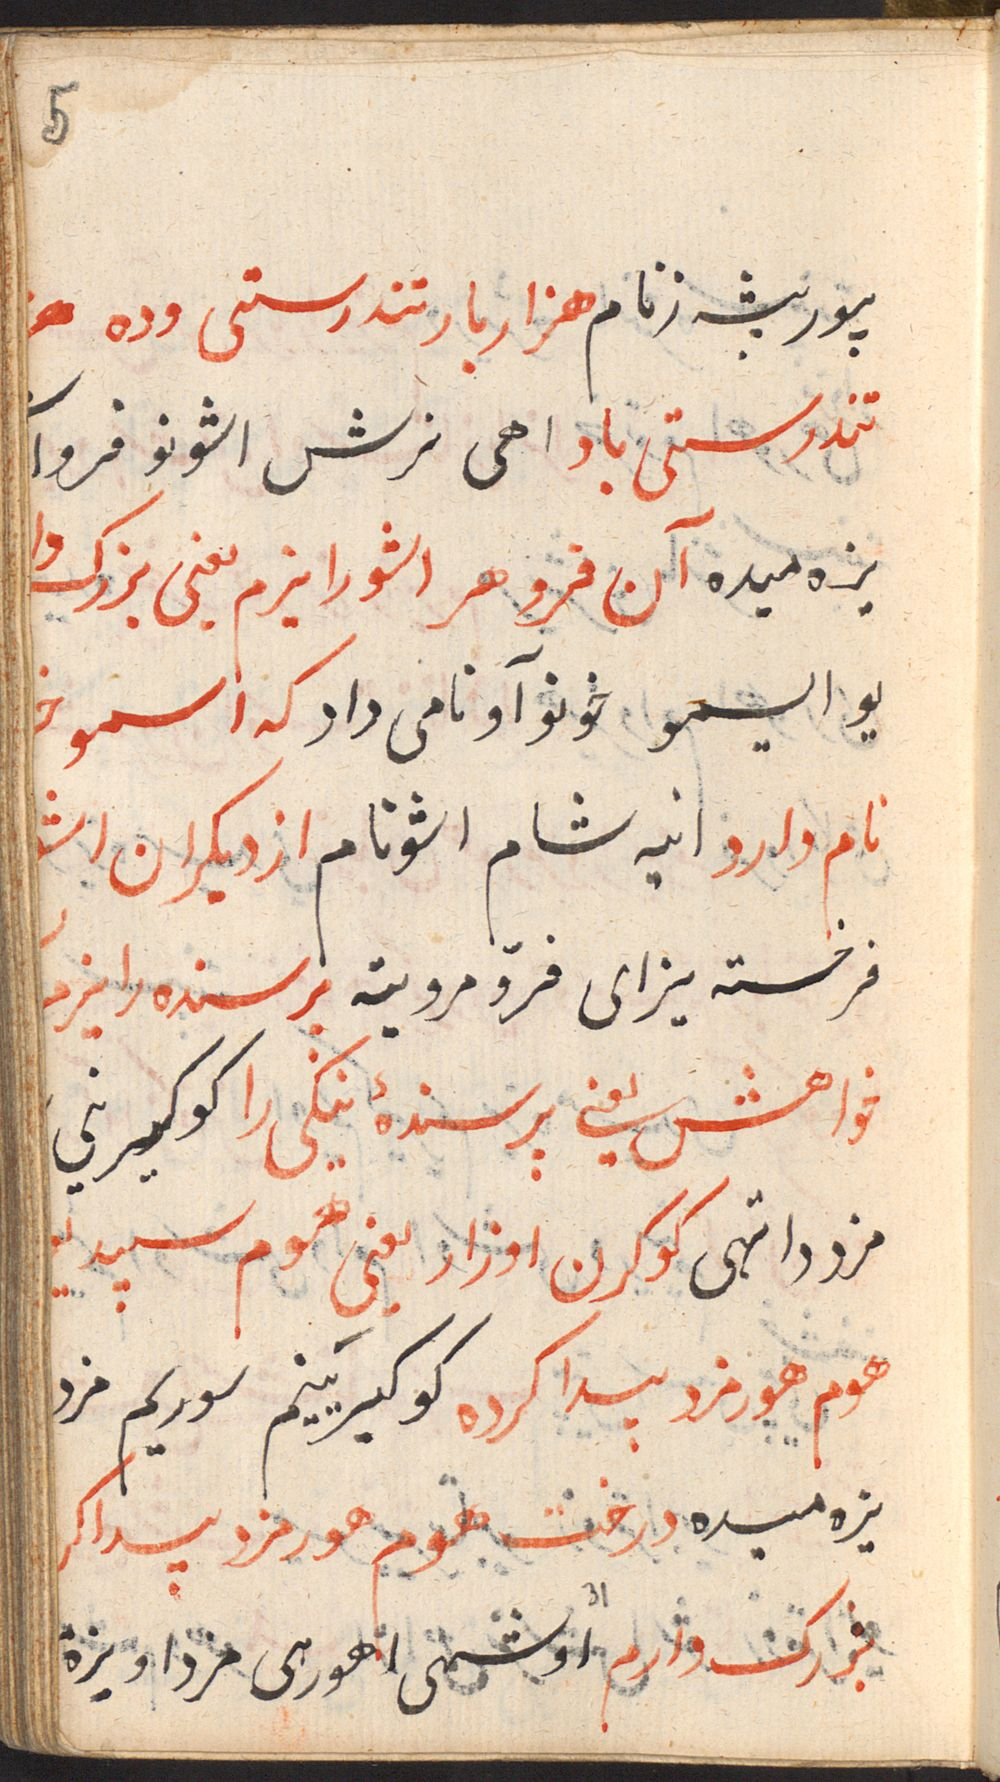 5
بیور بیشه زنام هزار بار تندرستی وده
تندرستی باد اهی نرش اشونو فروا
یزه میده آن فروهر اشو را یزم یعنی بزرک وا
یو ایسمو خونو آو نامی داد که اسمو
نام دارد انیه شام اشونام از دیکران اشو
فرخسته یزای فرو مرویته پرسنده را یزم
خواهش یعنی پرسندهٔ نیکی را کوکیرنی
مزدداتهی کوکرن اوزار یعنی هوم سپید
هوم هورمزد پیدا کرده کوکیریینم سوریم مزد
یزه میده درخت هوم هورمزد پیدا کر
بزرک دارم اوشهی اهورهی مزدا ویزة
31